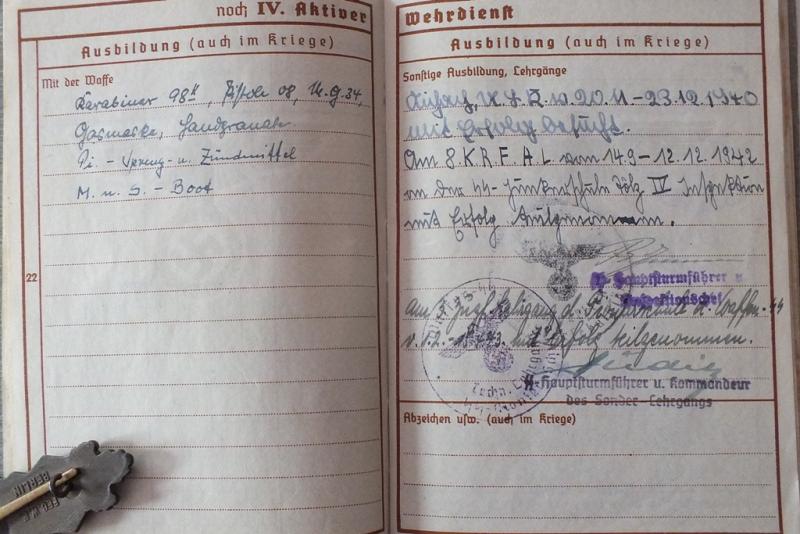 noch IV. Aktiver
Ausbildung (auch im Kriege)
Mit der Waffe
Karabiner 98k, Pistole 08, M.G. 34,
Gasmaske, Handgranate
Pi. - Spreng- u. Zündmittel
M. u. S. - Boot
22
Wehrdienst
Ausbildung (auch im Kriege)
Sonstige Ausbildung, Lehrgänge
20.11 - 23.12.1940
mit Erfolg besucht.
Am 8. K.R.F.A.L. vom 14.9 - 12.12.1942
an der SS-Junkerschule Tölz IV Inspektion
mit Erfolg teilgenommen.
SS-Hauptsturmführer u.
Inspektionschef
Am 3. Lehrgang d. Pionierschule d. Waffen-SS
mit Erfolg teilgenommen.
SS-Hauptsturmführer u. Kommandeur
des Sonder-Lehrgangs
Abzeichen usw. (auch im Kriege)
BERLIN